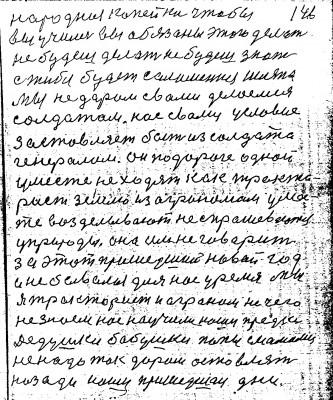 народныя копейки чтобы 146
вы училися вы обязаны этого делат
не будеш делат не будеш знат
с тибя будет саломеная шляпа
мы не даром с вами делаемся
солдатам, нас свами условие
заставляет быт из солдата
генералом. он подороге одной
уместе не ходят как трактор
раст землю из агрономам уме
те возделывают не спрашевают
уприроды, она им не говарит
за этот пришедший новай год
и не бывалая для нас уремя мы
я тракторист и агроном нечего
не знаем нас научили наши предки
Дедушки бабушки папи смамами
ненада так дарам оставлят
позади нашу пришедшаи дни.